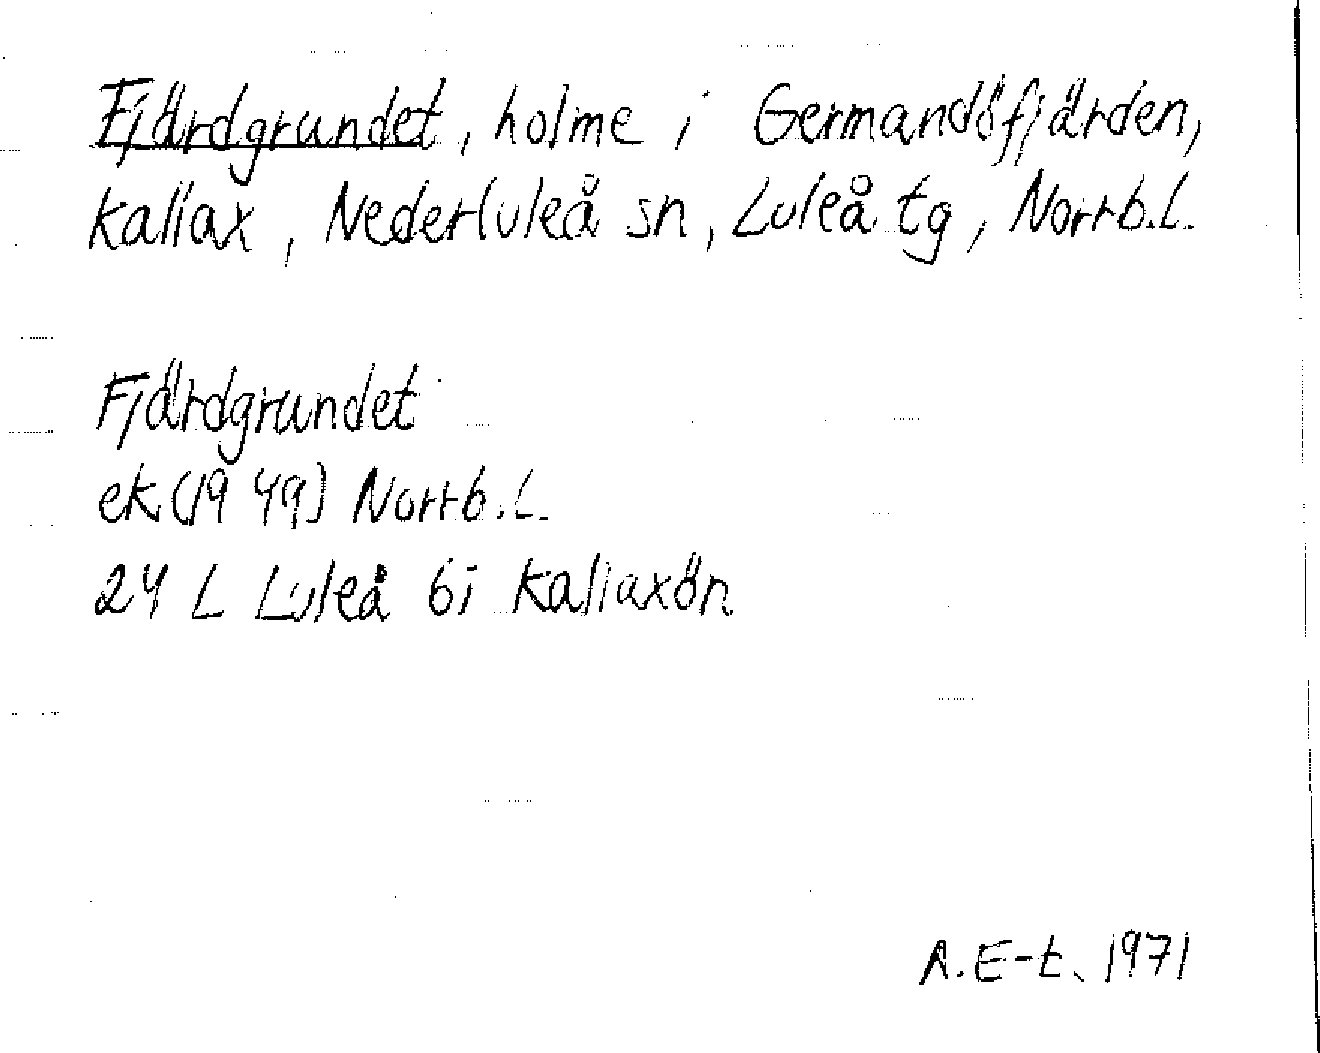 Fjärdgrundet, holme i Germandöfjärden,
Kallax, Nederluleå sn, Luleå tg, Norrb.L.
Fjärdgrundet
ek.(1949) Norrb.L.
24 L Luleå 6i Kallaxön
A.E-t. 1971